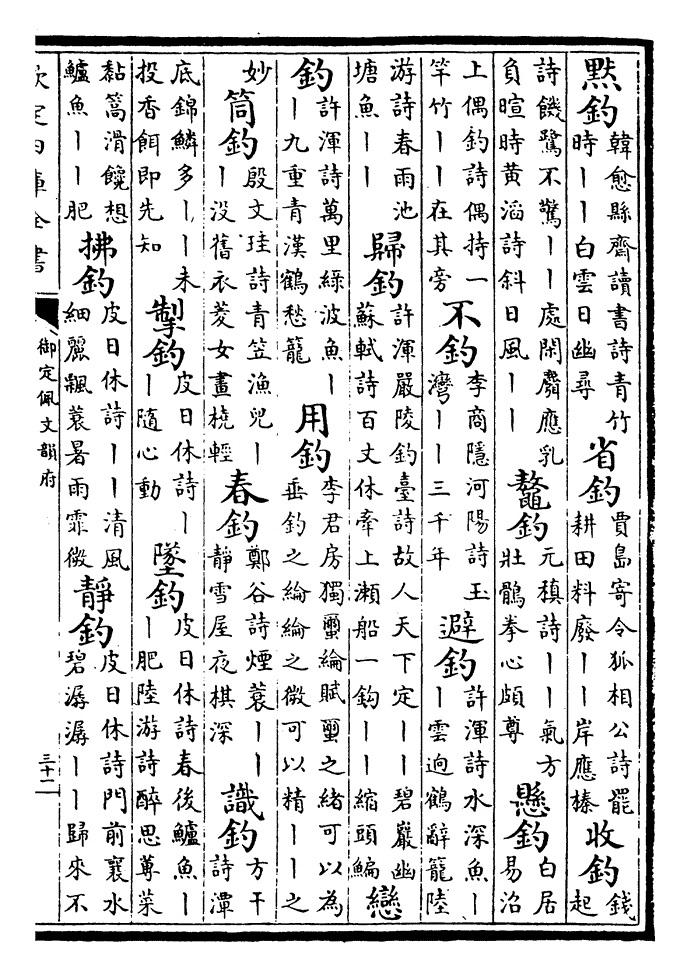 黙釣韓愈縣齋讀書詩青竹時丨丨白雲日幽尋省釣賈島寄令狐相公詩罷耕田料廢丨丨岸應榛收釣錢起
詩饑鷺不驚丨丨處閑麕應乳負暄時黄滔詩斜日風丨丨鼇釣元稹詩丨丨氣方壯鶻拳心頗尊懸釣白居易沿
上偶釣詩偶持一竿竹丨丨在其旁不釣李商隱河陽詩玉灣丨丨三千年避釣許渾詩水深魚丨丨雲逈鶴辭籠陸
游詩春雨池塘魚丨丨歸釣許渾嚴陵釣臺詩故人天下定丨丨碧巖幽蘇軾詩百丈休牽上瀨船一鈎丨丨縮頭鯿戀
釣許渾詩萬里綠波魚丨丨九重青漢鶴愁籠用釣李君房獨璽綸賦璽之緒可以為垂釣之綸綸之微可以精丨丨之
妙筒釣殷文珪詩青笠漁兒丨丨没舊衣菱女畫橈輕春釣鄭谷詩煙蓑丨丨靜雪屋夜棋深識釣方干詩潭
底錦鱗多丨丨未投香餌即先知掣釣皮日休詩丨丨隨心動墜釣皮日休詩春後鱸魚丨丨肥陸游詩醉思蓴菜
黏篙滑饞想鱸魚丨丨肥拂釣皮日休詩丨丨清風細麗飄蓑暑雨霏微靜釣皮日休詩門前襄水碧潺潺丨丨歸來不
欽定四庫全書
御定佩文韻府
三十二